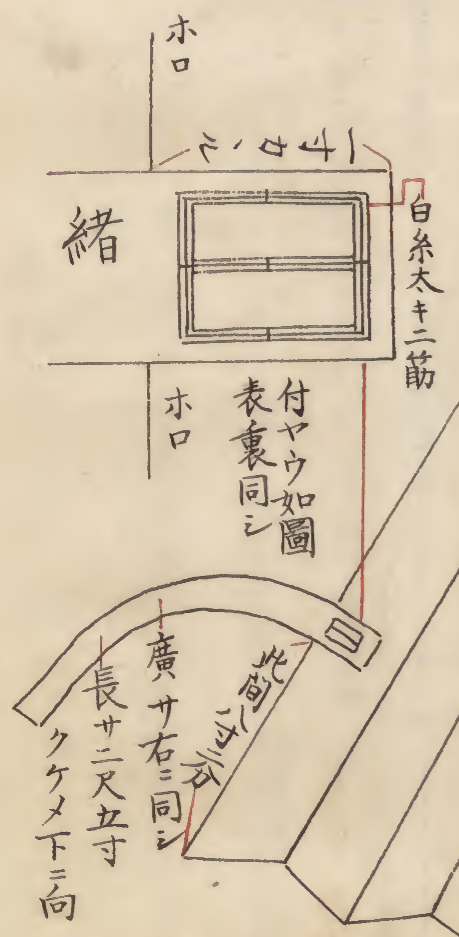 ホロ
一寸カヽル
白糸太キ二筋
緒
ホロ
付ヤウ如圖
表裏同シ
此間八寸二分
廣サ右ニ同シ
長サ二尺五寸
クケメ下ニ向